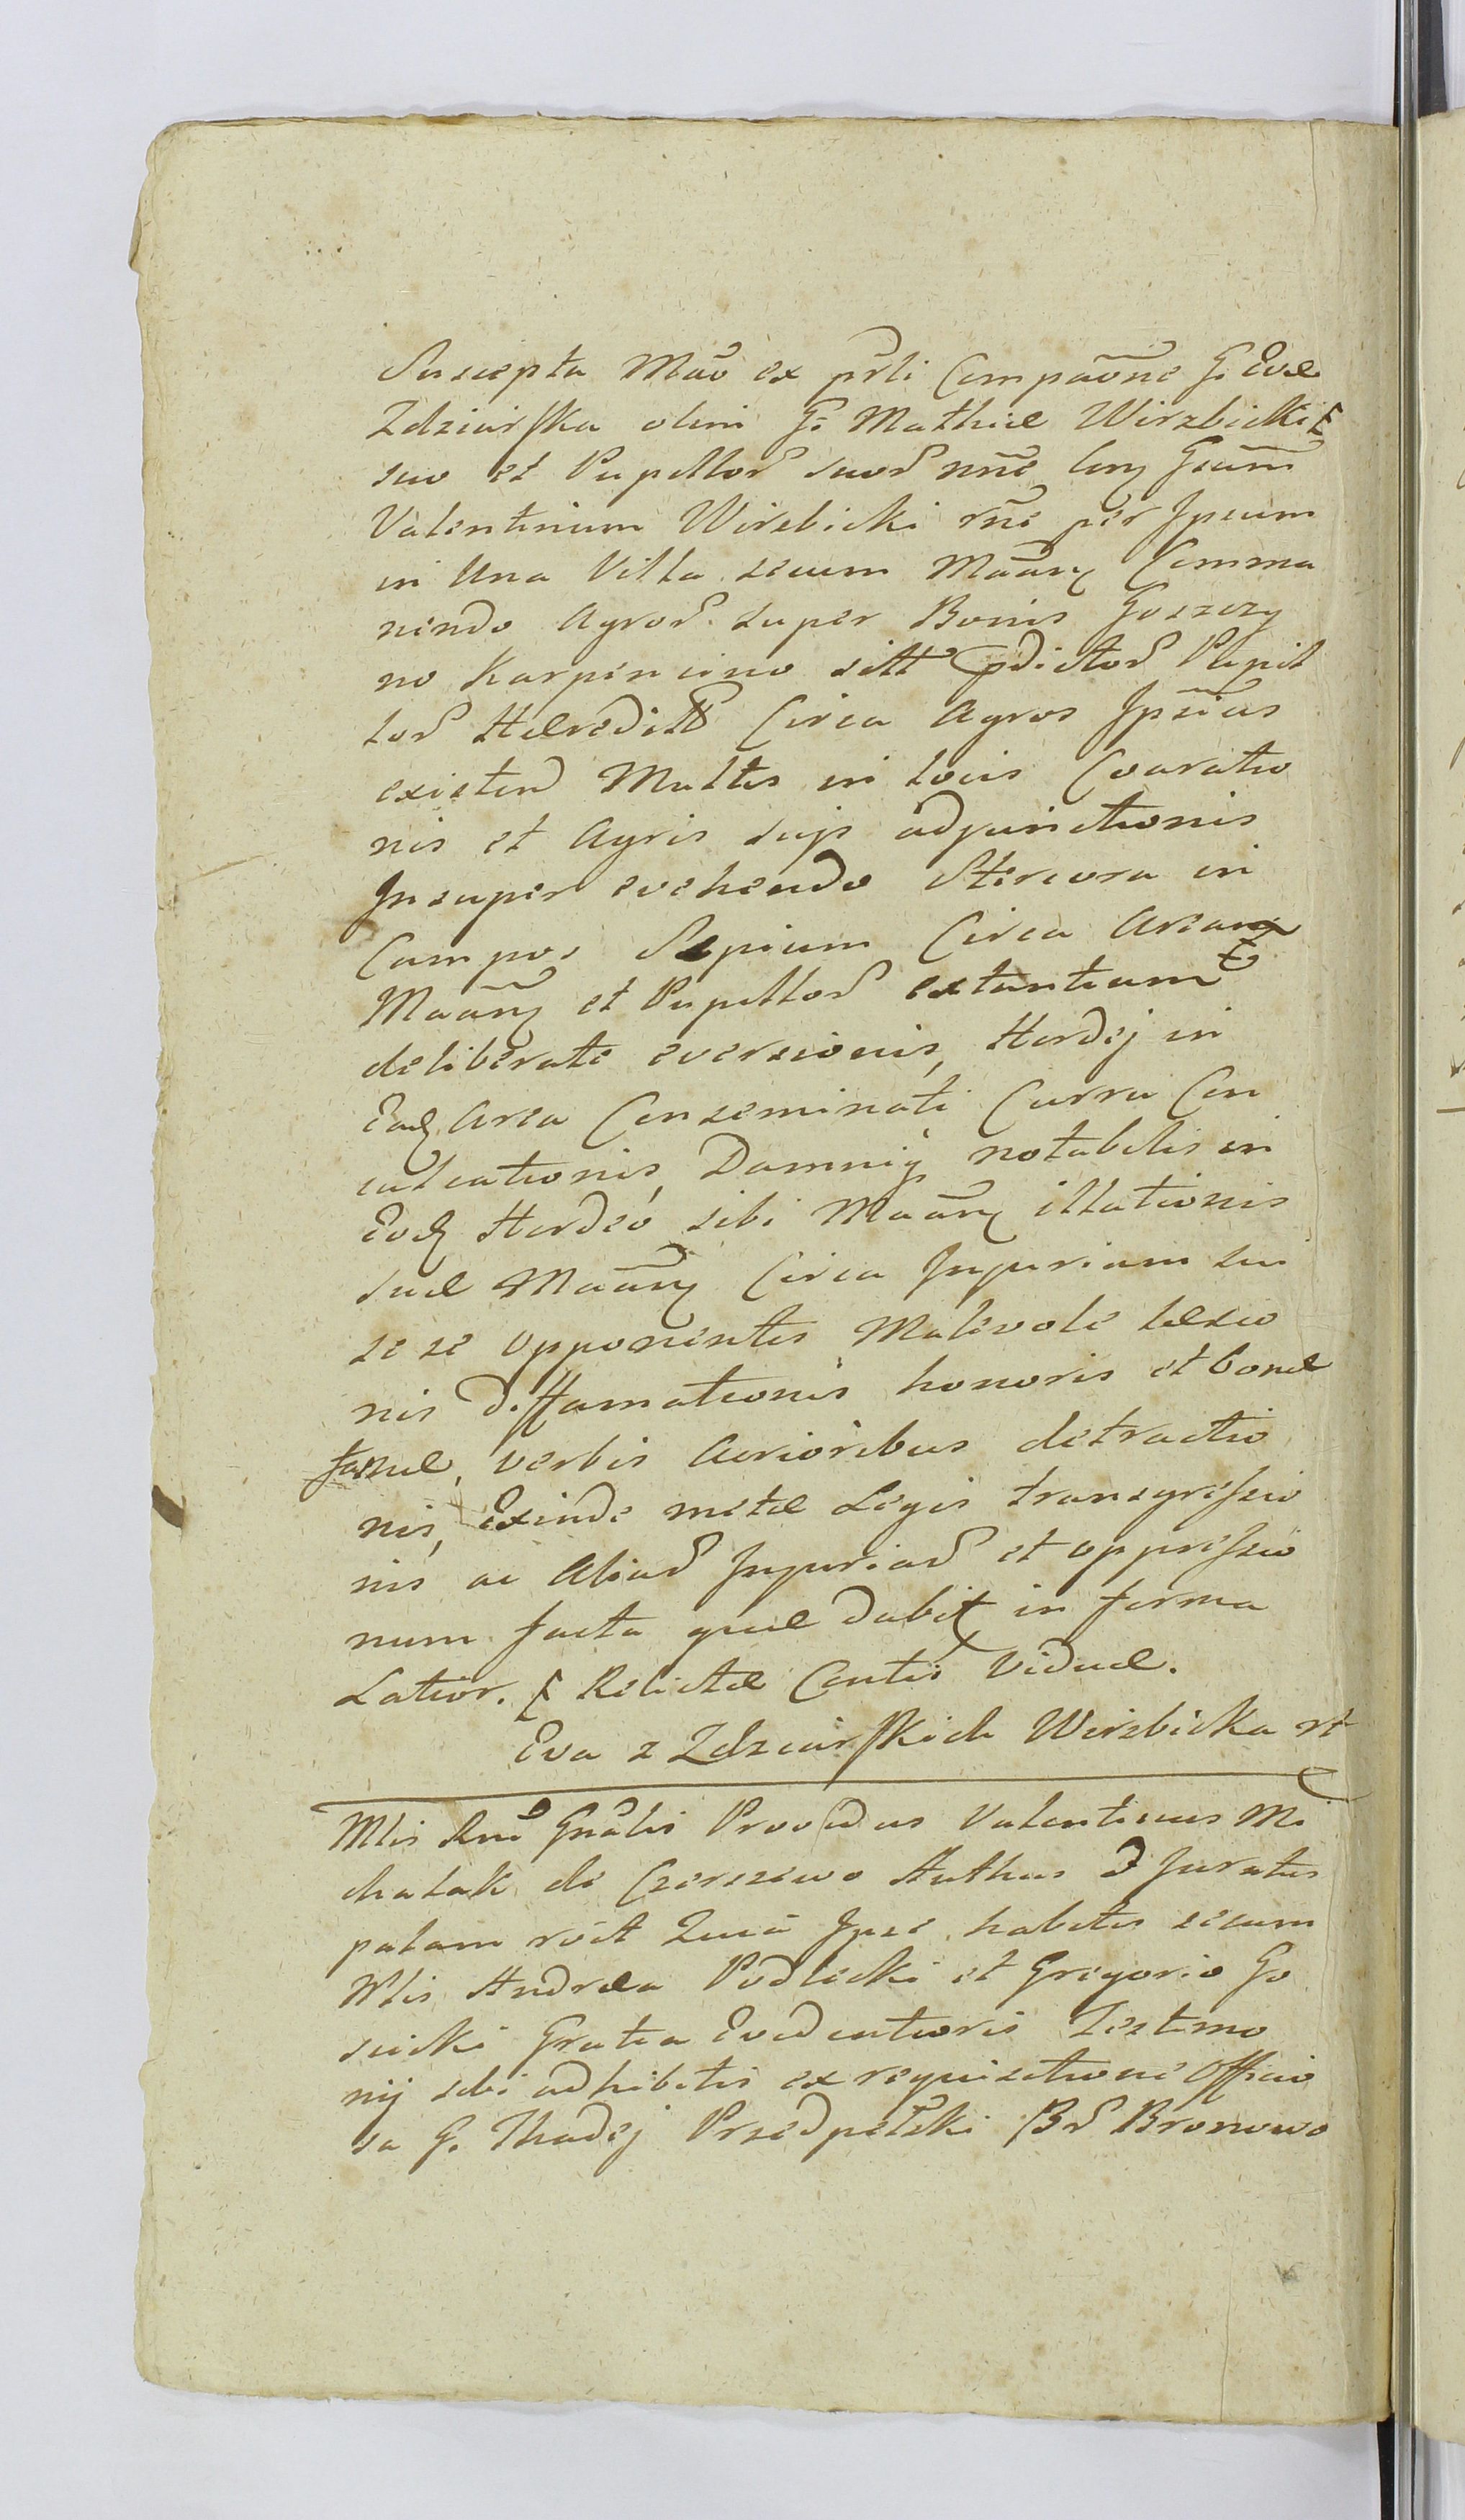 Suscepta Mãõ ex p̃rli Compãõne G. Evæ
Zdziarska olim G. Mathiæ Wirzbicki
suo et Pupillor suor nñe Cong Geñm
Valentinum Wirzbicki rñe per Ipsum
in Una Villa secum Mãang Comma
nendo Agror super Bonis Goszczy
no Karpincino sitt pdictor Pupil
lor Hæreditt Circa Agros Ipsius
existen Multis in locis Coaratio
nis et Agris suis adjunctionis
Insuper evehendo Stercora in
Campos Sepium Circa Aream
Mãang et Pupillor extantium
deliberate eversionis, Hordej in
Ead Area Conseminati Curru Con
culcationis, Damnij notabilis in
Eod Hordeo sibi Mãang illationis
suæ Mãang Circa Injuriam sui
se se opponentis Malevole læsio
nis diffamationis honoris et bonæ
famæ, verbis Acrioribus detractio
nis, Exinde metæ Legis transgressio
nis ac Aliar Injuriar et oppressio
num facta quæ dabit in forma
Latior. Relictæ Contis Viduæ.
Eva z Zdziarskich Wirzbicka
Mlis Rni Gnalis Providus Valentinus Mi
chalak de Czerszewo Authus Juratus
palam roit Quia Ipse habitis secum
Nlis Andræa Podlecki et Gregorio Go
sucki Gratia Evidentioris Testimo
nij sibi adhibitis ex requisitione Officio
sa G. Thadej Przedpełski Br Bronowo